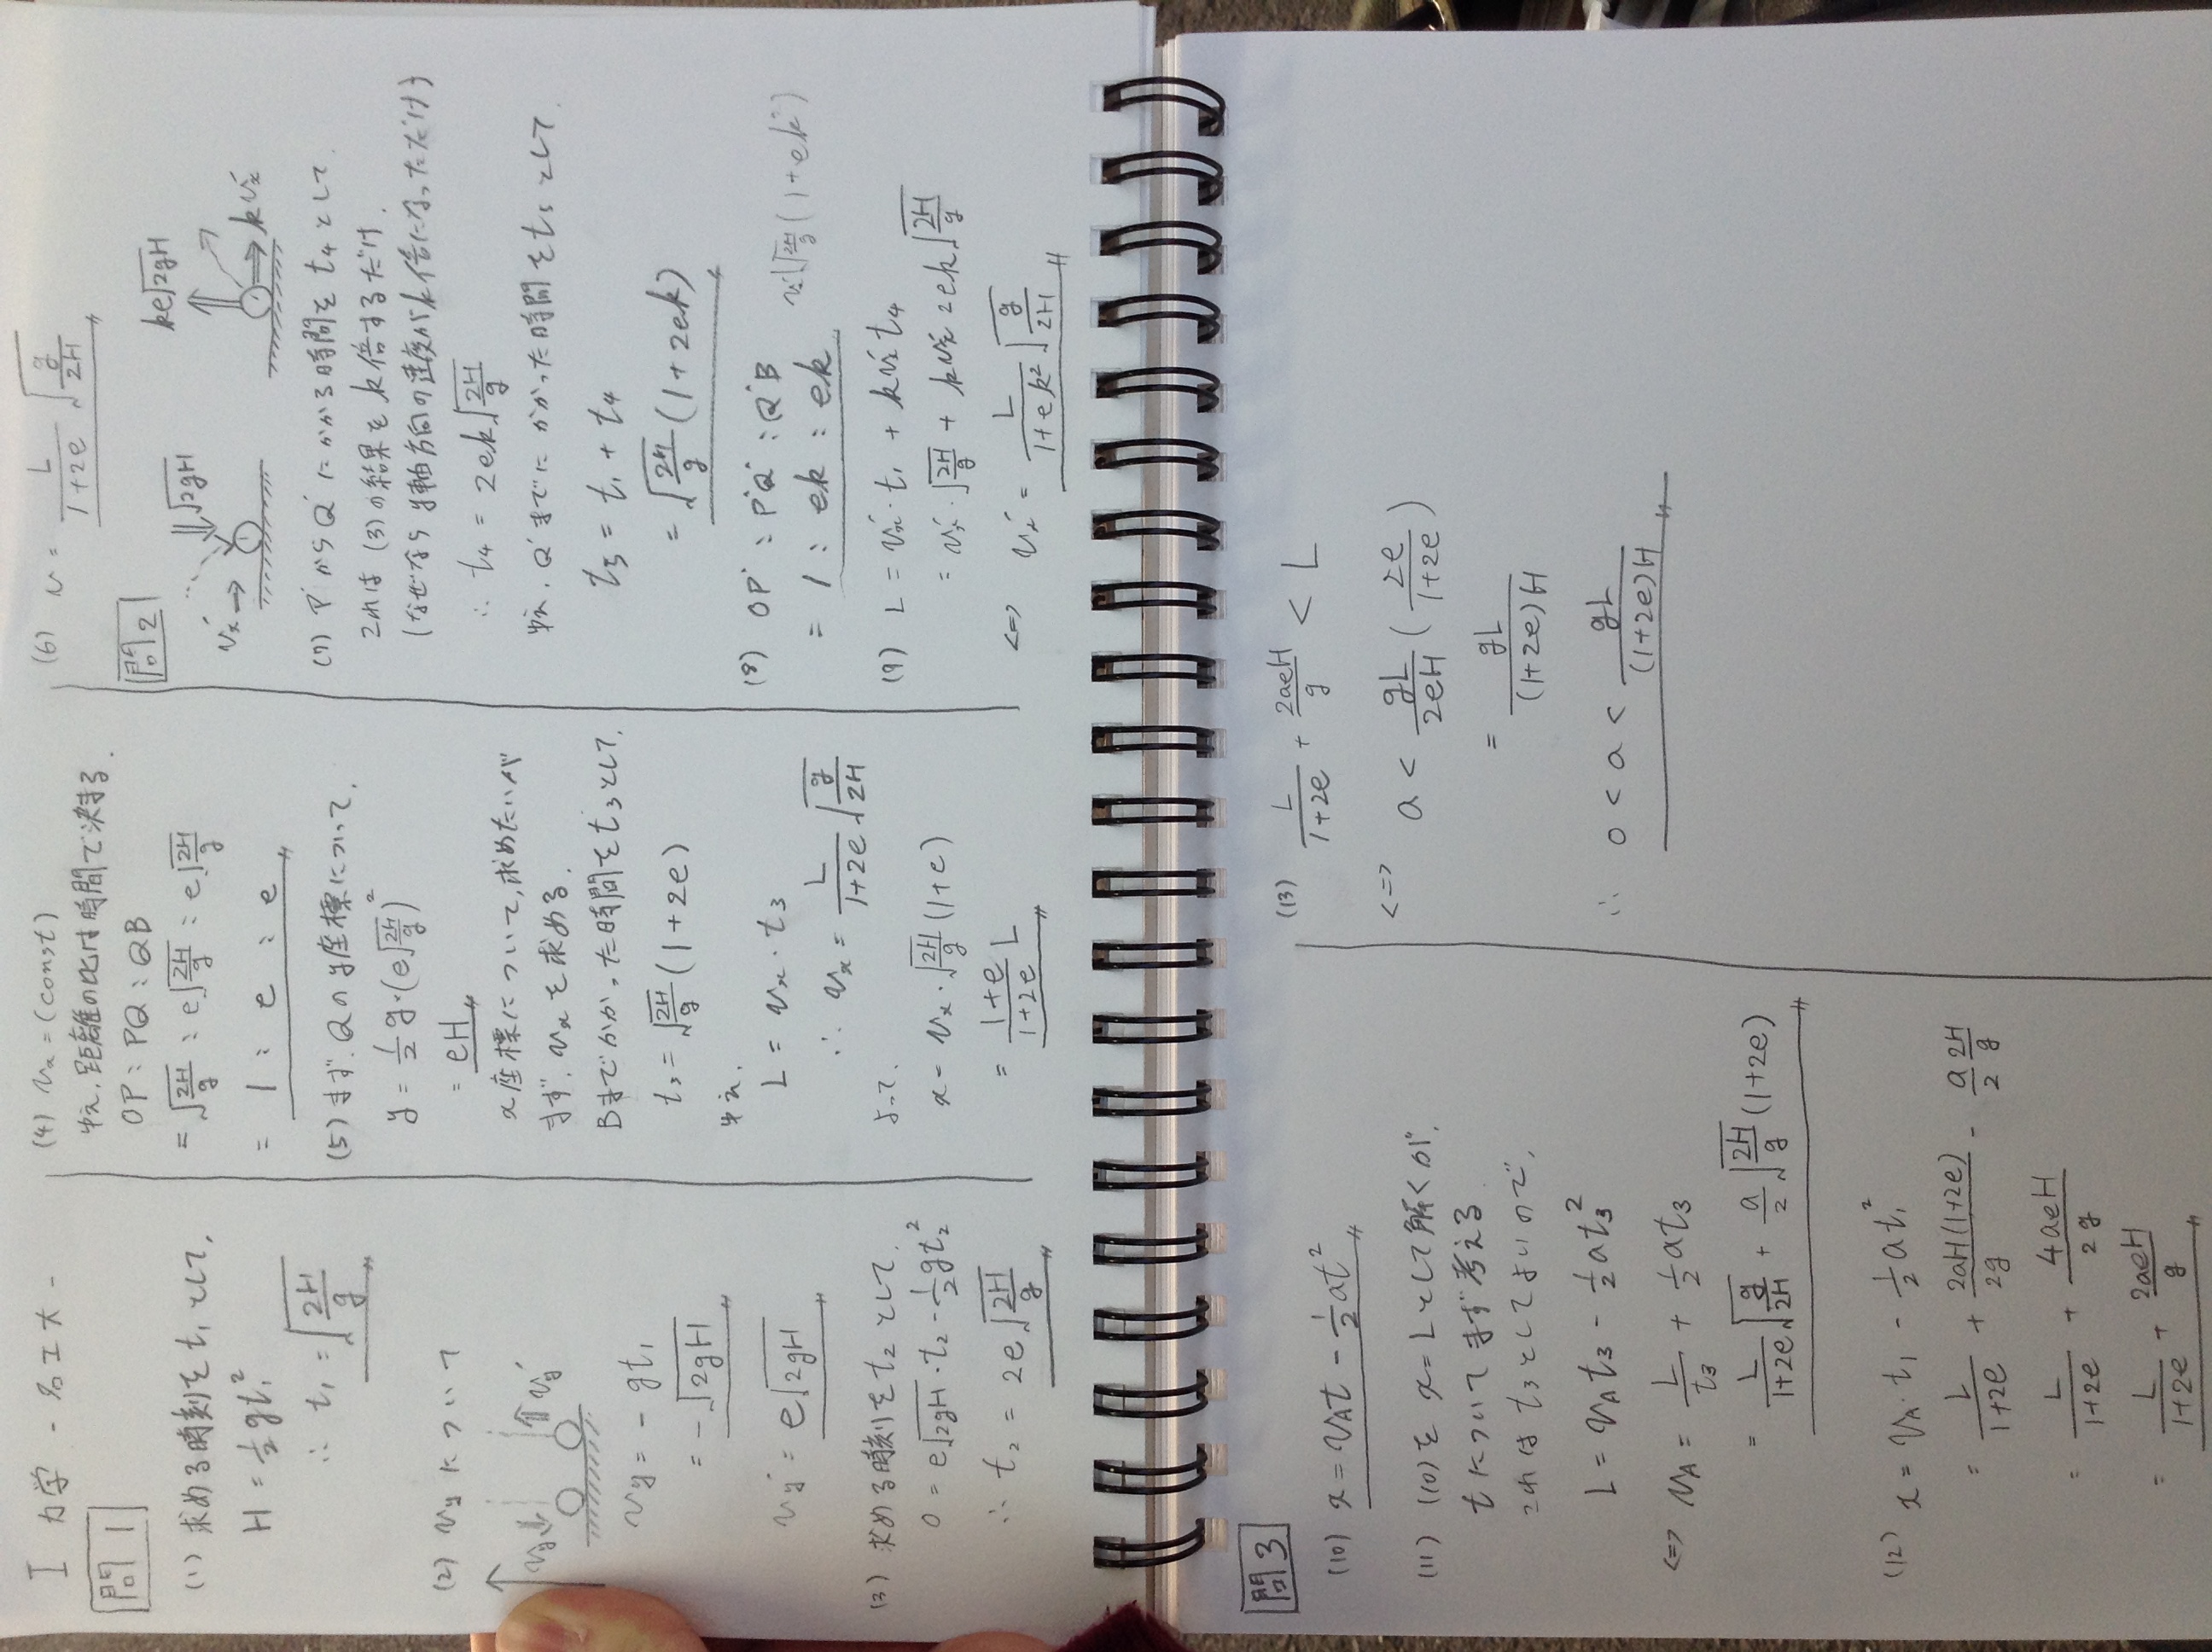 I 力学 - 名工大 -
問1
(1) 求める時刻をt₁として,
H = 1/2 gt₁²
∴ t₁ = √(2H/g)
(2) vy について
vy vy'
vy = - gt₁
= - √(2gH)
vy' = e√(2gH)
(3) 求める時刻をt₂として
0 = e√(2gH)・t₂ - 1/2 gt₂²
∴ t₂ = 2e√(2H/g)
(4) vx = (const)
ゆえ, 距離の比は時間で決まる.
OP : PQ : QB
= √(2H/g) : e√(2H/g) : e√(2H/g)
= 1 : e : e
(5) まず, Qのy座標について,
y = 1/2 g・(e√(2H/g))²
= eH
x座標について, 求めたいが
まず, vx を求める.
Bまでかかった時間をt₃として,
t₃ = √(2H/g) (1+2e)
ゆえ,
L = vx・t₃
∴ vx = L/(1+2e) √(g/2H)
よって,
x = vx・√(2H/g) (1+e)
= (1+e)/(1+2e) L
(6) v = L/(1+2e) √(g/2H)
問2
vx' √(2gH) ke√(2gH) kvx'
(7) P'からQ'にかかる時間をt₄として.
これは(3)の結果をk倍するだけ.
(なぜならy軸方向の速度がk倍になっただけ)
∴ t₄ = 2ek√(2H/g)
ゆえ, Q'までにかかった時間をt₅として
t₅ = t₁ + t₄
= √(2H/g) (1+2ek)
(8) OP' : P'Q' : Q'B
= 1 : ek : ek
vx'√(2H/g) (1+ek²)
(9) L = vx'・t₁ + kvx' t₄
= vx'・√(2H/g) + kvx' 2ek√(2H/g)
<=> vx' = L/(1+ek²) √(g/2H)
問3
(10) x = vA t - 1/2 at²
(11) (10)を x=L として解くが,
tについてまず考える
これはt₃としてよいので,
L = vA t₃ - 1/2 at₃²
<=> vA = L/t₃ + 1/2 at₃
= L/(1+2e) √(g/2H) + a/2 √(2H/g) (1+2e)
(12) x = vA・t₁ - 1/2 at₁²
= L/(1+2e) + 2aH(1+2e)/2g - a/2 2H/g
= L/(1+2e) + 4aeH/2g
= L/(1+2e) + 2aeH/g
(13) L/(1+2e) + 2aeH/g < L
<=> a < gL/2eH (2e/(1+2e))
= gL/((1+2e)H)
∴ 0 < a < gL/((1+2e)H)